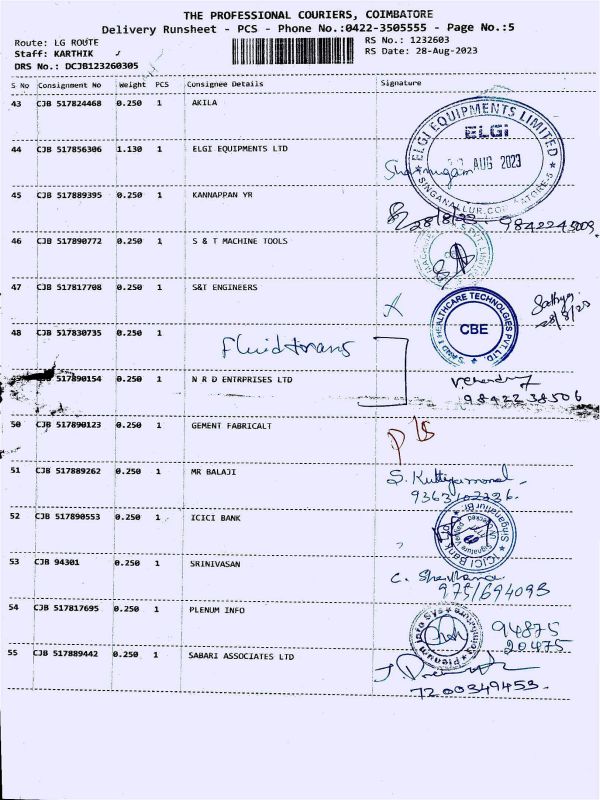 THE PROFESSIONAL COURIERS, COIMBATORE
Delivery Runsheet - PCS - Phone No.:0422-3505555 - Page No.:5
Route: LG ROUTE
RS No.: 1232603
Staff: KARTHIK
RS Date: 28-Aug-2023
DRS No.: DCJB123260305
S No Consignment No Weight PCS Consignee Details Signature
43 CJB 517824468 0.250 1 AKILA
ELGI EQUIPMENTS LIMITED
ELGI
AUG 2023
SINGANALLUR,
44 CJB 517856306 1.130 1 ELGI EQUIPMENTS LTD
Shanmugam
45 CJB 517889395 0.250 1 KANNAPPAN YR
28/8/23. 9842245009.
46 CJB 517890772 0.250 1 S & T MACHINE TOOLS
47 CJB 517817708 0.250 1 S&T ENGINEERS
S AND T HEALTHCARE TECHNOLGIES PVT. LTD
CBE
Sathya
28/8/23
48 CJB 517830735 0.250 1
Fluidtrans
517890154 0.250 1 N R D ENTRPRISES LTD
9842238506
50 CJB 517890123 0.250 1 GEMENT FABRICALT
51 CJB 517889262 0.250 1 MR BALAJI
S. Kuttiyammal
9363102236.
52 CJB 517890553 0.250 1 ICICI BANK
ICICI Bank
Singanallur Br.
Signature
53 CJB 94301 0.250 1 SRINIVASAN
C.
9751694093
54 CJB 517817695 0.250 1 PLENUM INFO
94875
20475
55 CJB 517889442 0.250 1 SABARI ASSOCIATES LTD
7200349453.